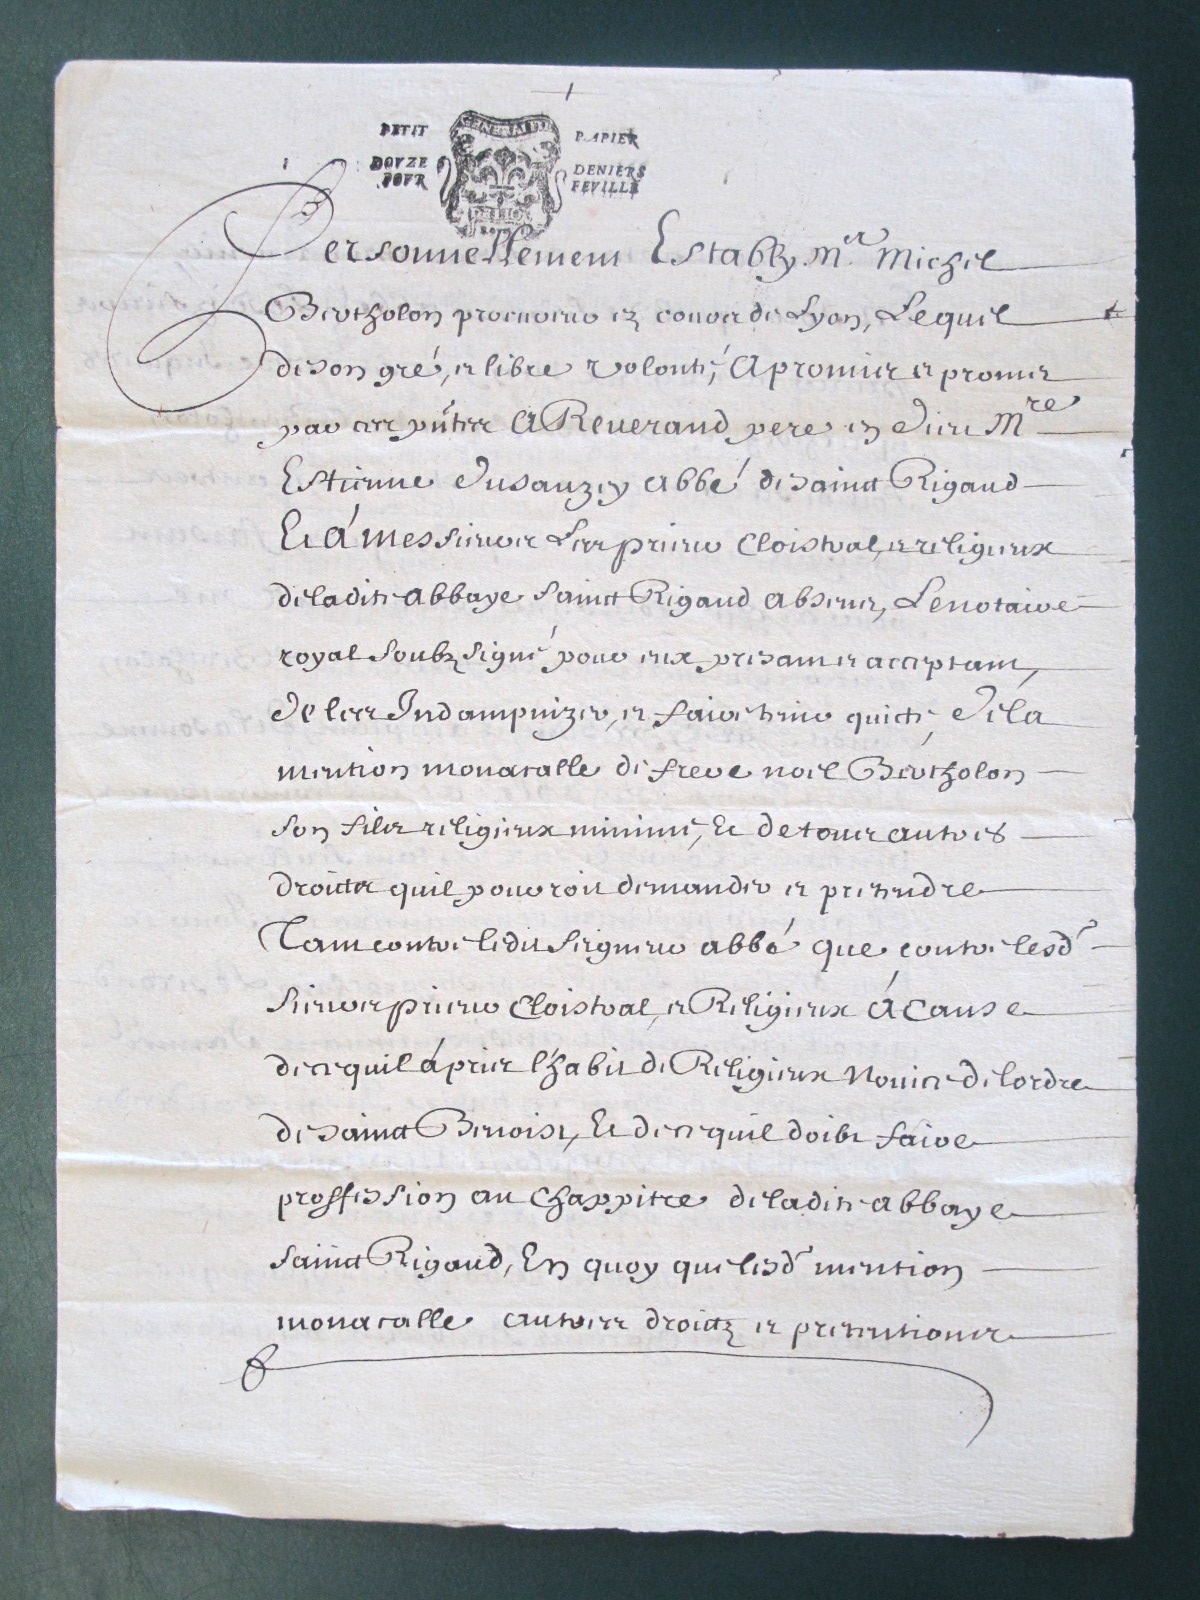 PETIT PAPIER
GENERALITE
DOVZE DENIERS
POVR FEVILLE
DE LION
Personnellement Estably Mer Michel
Bertholon procureur ez cours de Lyon, Lequel
de son gré, et libre volonté, A promis et promet
par ces pntes A Reverand pere en Dieu Mre
Estienne Dusauzey abbé de sainct Rigaud
Et á messieurs Les prieur Cloistral, et religieux
de ladite abbaye sainct Rigaud absens, Le notaire
royal soubzsigné pour eux present et acceptant,
De les Indampnizer, et faire tenir quicte, De la
mention monacalle de frere noel Bertholon
son filz religieux minime, Et de tous autres
droictz quil pourroit demander et pretendre
Tant contre ledit seigneur abbé que contre lesd
sieurs prieur Cloistral, et Religieux á cause
de ce quil á pris l'habit de Religieux Novice de lordre
de sainct Benoist, Et de ce quil doibt faire
proffession au Chappitre de ladite abbaye
sainct Rigaud, En quoy que lesd mention
monacalle autres droictz et pretentions